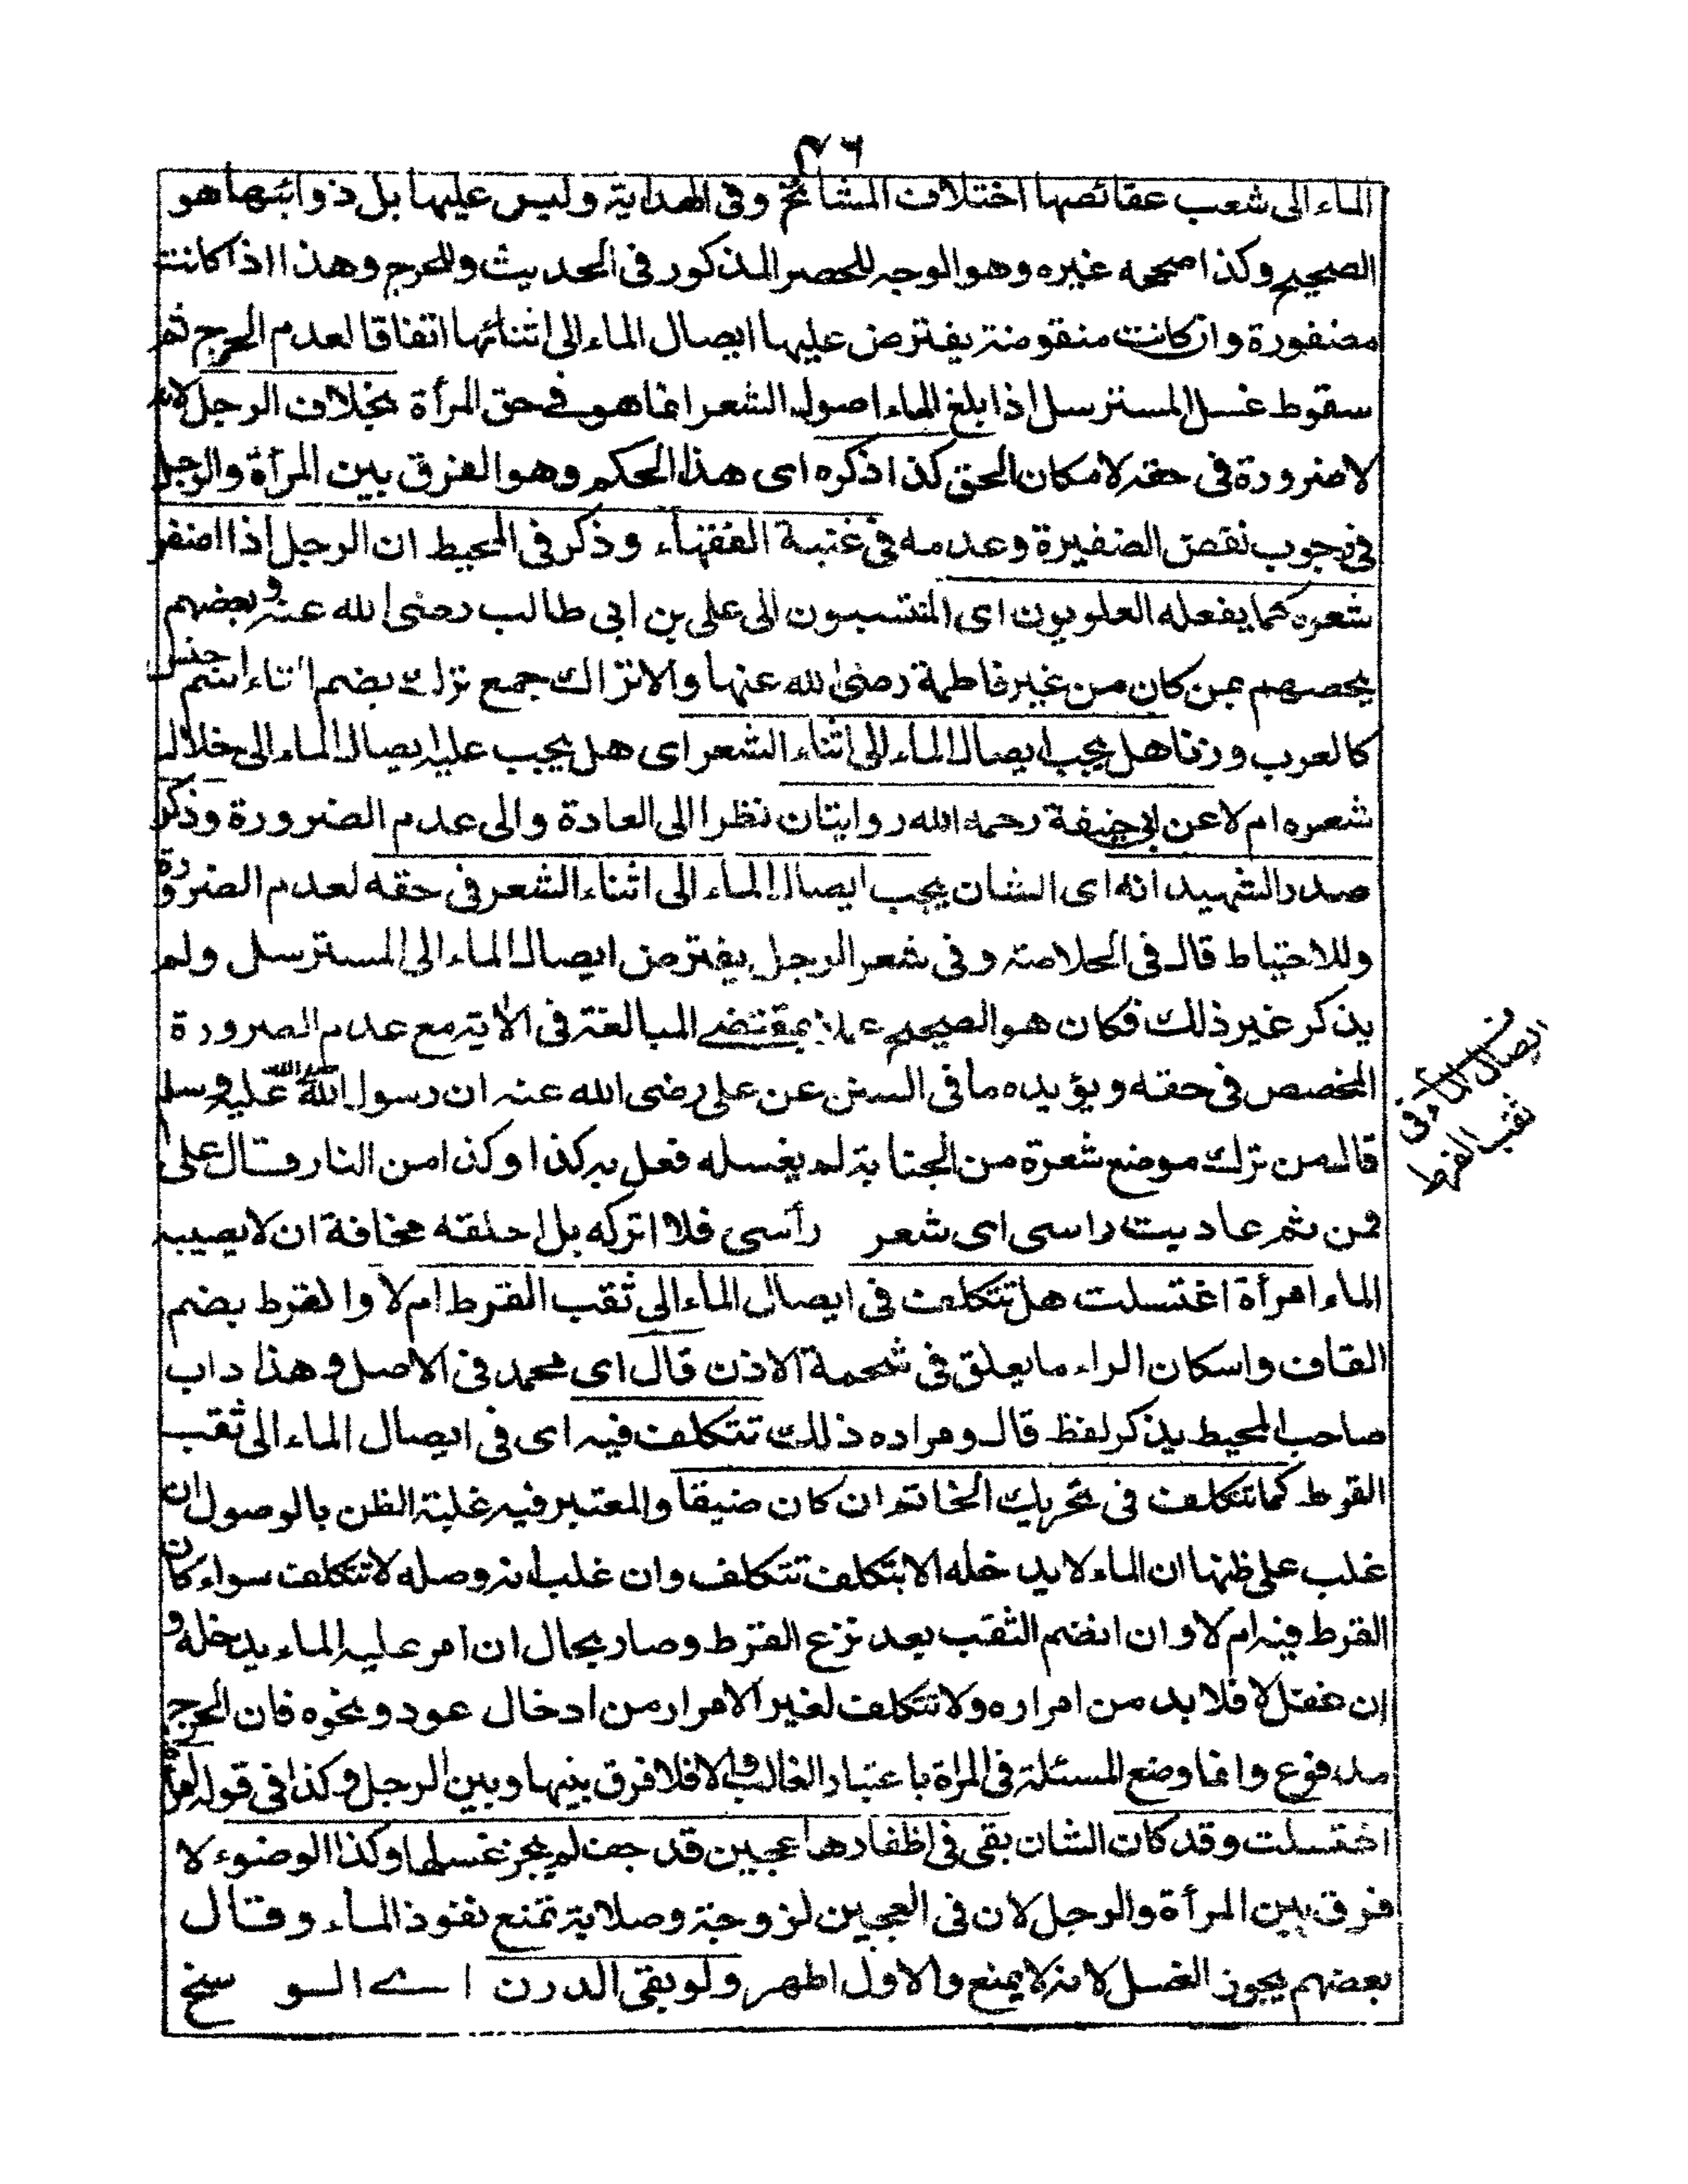 ٤٦
الماء الى شعب عقائصها اختلاف المشائخ وفى الهداية وليس عليها بل ذوائبها هو
الصحيح وكذا صححه غيره وهو الوجه للحصر المذكور فى الحديث وللحرج وهذا اذا كانت
مضفورة وان كانت منقوضة يفترض عليها ايصال الماء الى اثنائها اتفاقا لعدم الحرج ثم
سقوط غسل المسترسل اذا بلغ الماء اصول الشعر انما هو فى حق المرأة بخلاف الرجل لانه
لا ضرورة فى حقه لامكان الحق كذا ذكره اى هذا الحكم وهو الفرق بين المرأة والرجل
فى وجوب نقص الضفيرة وعدمه فى غنية الفقهاء وذكر فى المحيط ان الرجل اذا اضفر
شعره كما يفعله العلويون اى المنتسبون الى على بن ابى طالب رضى الله عنه وبعضهم
يخصهم بمن كان من غير فاطمة رضى الله عنها والاتراك جمع ترك بضم التاء اسم جنس
كالعرب وزنا هل يجب ايصال الماء الى اثناء الشعر اى هل يجب عليه ايصال الماء الى خلال
شعره ام لا عن ابى حنيفة رحمه الله روايتان نظرا الى العادة والى عدم الضرورة وذكر
صدر الشهيد انه اى الشان يجب ايصال الماء الى اثناء الشعر فى حقه لعدم الضرورة
وللاحتياط قال فى الخلاصة وفى شعر الرجل يفترض ايصال الماء الى المسترسل ولم
يذكر غير ذلك فكان هو الصحيح عملا بمقتضى المبالغة فى الاية مع عدم الضرورة
المخصص فى حقه ويؤيده ما فى السنن عن على رضى الله عنه ان رسول الله صلى الله عليه وسلم
قال من ترك موضع شعرة من الجنابة لم يغسله فعل به كذا وكذا من النار قال على
فمن ثم عاديت راسى اى شعر رأسى فلا اتركه بل احلقه مخافة ان لا يصيبه
الماء امرأة اغتسلت هل تتكلف فى ايصال الماء الى ثقب القرط ام لا والقرط بضم
القاف واسكان الراء ما يعلق فى شحمة الاذن قال اى محمد فى الاصل وهذا داب
صاحب المحيط يذكر لفظ قال ومراده ذلك تتكلف فيه اى فى ايصال الماء الى ثقب
القرط كما تتكلف فى تحريك الخاتم ان كان ضيقا والمعتبر فيه غلبة الظن بالوصول ان
غلب على ظنها ان الماء لا يدخله الا بتكلف تتكلف وان غلب انه وصله لا تتكلف سواء كان
القرط فيه ام لا وان انضم الثقب بعد نزع القرط وصار بحال ان امر عليه الماء يدخله و
ان غفل لا فلا بد من امراره ولا تتكلف لغير الامرار من ادخال عود ونحوه فان الحرج
مدفوع وانما وضع المسئلة فى المراة باعتبار الغالب والا فلا فرق بينها وبين الرجل وكذا فى قوله امرأة
اغتسلت وقد كان الشان بقى فى اظفارها عجين قد جف لم يجز غسلها وكذا الوضوء لا
فرق بين المرأة والرجل لان فى العجين لزوجة وصلابة تمنع نفوذ الماء وقال
بعضهم يجوز الغسل لانه لا يمنع والاول اظهر ولو بقى الدرن اے الوسخ
ايصال الماء فى
ثقب القرط